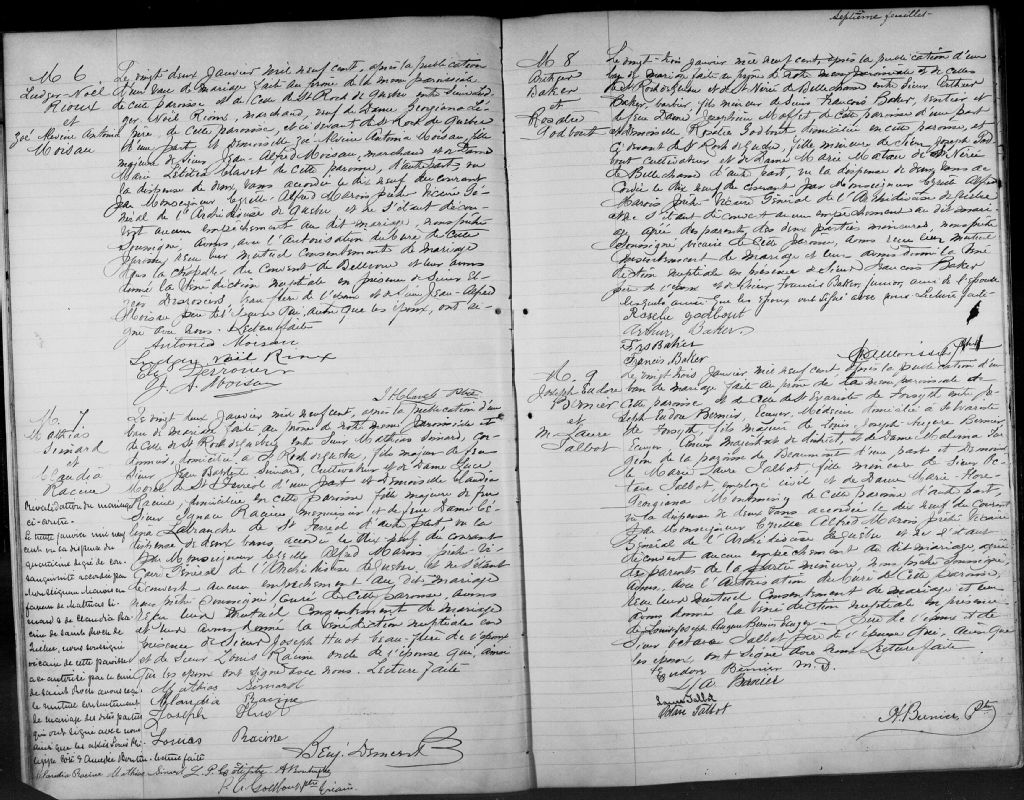 M. 6
Ludger-Noël
Rioux
et
Zoé Alvine Antonia
Moisan
Le vingt deux Janvier mil neuf cent, après la publication
d'un ban de mariage faite au prône de la messe paroissiale
de cette paroisse et de celle de St Roch de Québec entre Sieur Lud-
ger Noël Rioux, marchand, veuf de Dame Georgiana
de cette paroisse, et ci-devant de St Roch de Québec
d'une part, et Demoiselle Zoé Alvine Antonia Moisan, fille
majeure de Sieur Jean-Alfred Moisan, marchand et de Dame
Marie Létitia de cette paroisse, d'autre part, vu
la dispense de deux bans accordée le dix neuf du courant
par Monseigneur Cyrille Alfred Marois prêtre Vicaire Gé-
néral de l'Archidiocèse de Québec, et ne s'étant décou-
vert aucun empêchement au dit mariage, nous prêtre
soussigné, avons, avec l'autorisation du Curé de cette
paroisse, reçu leur mutuel consentement de mariage
dans la chapelle du Couvent de Bellevue et leur avons
donné la bénédiction nuptiale en présence de Sieur
beau-frère de l'époux et de Sieur Jean-Alfred
Moisan père de l'épouse qui, ainsi que les époux, ont si-
gné avec nous. Lecture faite
Antonia Moisan
Ludger Noël Rioux
J. A. Moisan
Ptre
M. 7
Mathias
Simard
et
Claudia
Racine
Le vingt deux Janvier mil neuf cent, après la publication d'un
ban de mariage faite au prône de notre messe paroissiale et
de celle de St Roch de Québec entre Sieur Mathias Simard, cor-
donnier, domicilié à St Roch de Québec, fils majeur de feu
Sieur Jean Baptiste Simard, Cultivateur et de Dame Luce
Morel de St Féréol d'une part et Demoiselle Claudia
Racine, domiciliée en cette paroisse fille majeure de feu
Sieur Ignace Racine, menuisier et de feue Dame
Labranche de St Féréol d'autre part, vu la
dispense de deux bans accordée le dix neuf du courant
par Monseigneur Cyrille Alfred Marois prêtre Vi-
caire Général de l'Archidiocèse de Québec, et ne s'étant
découvert aucun empêchement au dit mariage
nous prêtre soussigné Curé de cette paroisse, avons
reçu leur mutuel consentement de mariage
et leur avons donné la bénédiction nuptiale en
présence de Sieur Joseph Huot beau-frère de l'époux
et de Sieur Louis Racine oncle de l'épouse qui, ainsi
que les époux ont signé avec nous. Lecture faite
Mathias Simard
Claudia Racine
Joseph Huot
Louis Racine
Benj. Demers Ptre
Revalidation du mariage
ci-contre.
Le janvier mil neuf
cent vu la dispense du
quatrième degré de con-
sanguinité accordée par
Monseigneur Marois en
faveur de Mathias Si-
mard & de Claudia Ra-
cine de Sainte Roch de
Québec, nous soussigné
vicaire de cette paroisse
et autorisé par le curé
de Saint Roch avons reçu
le mutuel consentement
de mariage des dites parties
qui ont signé avec nous
ainsi que
lecture faite
Claudia Racine Mathias Simard
Ptre Vicaire
Septième feuillet
M 8
Arthur
Baker
et
Rosalie
Godbout
Le vingt-trois Janvier mil neuf cent après la publication d'un
ban de mariage faite au prône de notre messe paroissiale et de celles
de St Roch de Québec et de St Nérée de Bellechasse entre Sieur Arthur
Baker, barbier, fils mineur de Sieur François Baker, rentier et
de feu Dame Joséphine de cette paroisse d'une part
et Demoiselle Rosalie Godbout domiciliée en cette paroisse, et
ci-devant de St Roch de Québec, fille mineure de Sieur Joseph God-
bout Cultivateur et de Dame Marie de St Nérée
de Bellechasse d'autre part, vu la dispense de deux bans ac-
cordée le dix neuf du courant par Monseigneur Cyrille Alfred
Marois prêtre Vicaire Général de l'Archidiocèse de Québec
et ne s'étant découvert aucun empêchement au dit maria-
ge agréé des parents des deux parties mineures, nous prêtre
soussigné, vicaire de cette paroisse, avons reçu leur mutuel
consentement de mariage et leur avons donné la béné-
diction nuptiale en présence de Sieur François Baker
père de l'époux et de Sieur Francis Baker, junior, ami de l'épouse
lesquels ainsi que les époux ont signé avec nous. Lecture faite
Rosalie Godbout
Arthur Baker
Frs Baker
Francis Baker
Ptre
M. 9
Joseph Eudore
Bernier
et
M. Laure
Talbot
Le vingt trois Janvier mil neuf cent après la publication d'un
ban de mariage faite au prône de la messe paroissiale de
cette paroisse et de celle de St Evariste de Forsyth, entre Jo-
seph Eudore Bernier, Ecuyer, Médecin domicilié à St Evariste
de Forsyth, fils majeur de Louis Joseph Eugène Bernier
Ecuyer, et de Dame
de la paroisse de Beaumont d'une part et Demoisel-
le Marie Laure Talbot, fille mineure de Sieur Oc-
tave Talbot employé civil et de Dame Marie Flore
Georgiana Montminy de cette paroisse d'autre part,
vu la dispense de deux bans accordée le dix neuf du courant
par Monseigneur Cyrille Alfred Marois prêtre Vicaire
Général de l'Archidiocèse de Québec et ne s'étant
découvert aucun empêchement au dit mariage, agréé
des parents de la partie mineure, nous prêtre soussigné,
avons, avec l'autorisation du Curé de cette paroisse,
reçu leur mutuel consentement de mariage et leur
avons donné la bénédiction nuptiale en présence
de Louis Joseph Eugène Bernier Ecuyer père de l'époux et de
Sieur Octave Talbot père de l'épouse qui, ainsi que
les époux, ont signé avec nous. Lecture faite
Eudore Bernier M.D.
Bernier
Laure Talbot
Octave Talbot
A. Bernier, Ptre